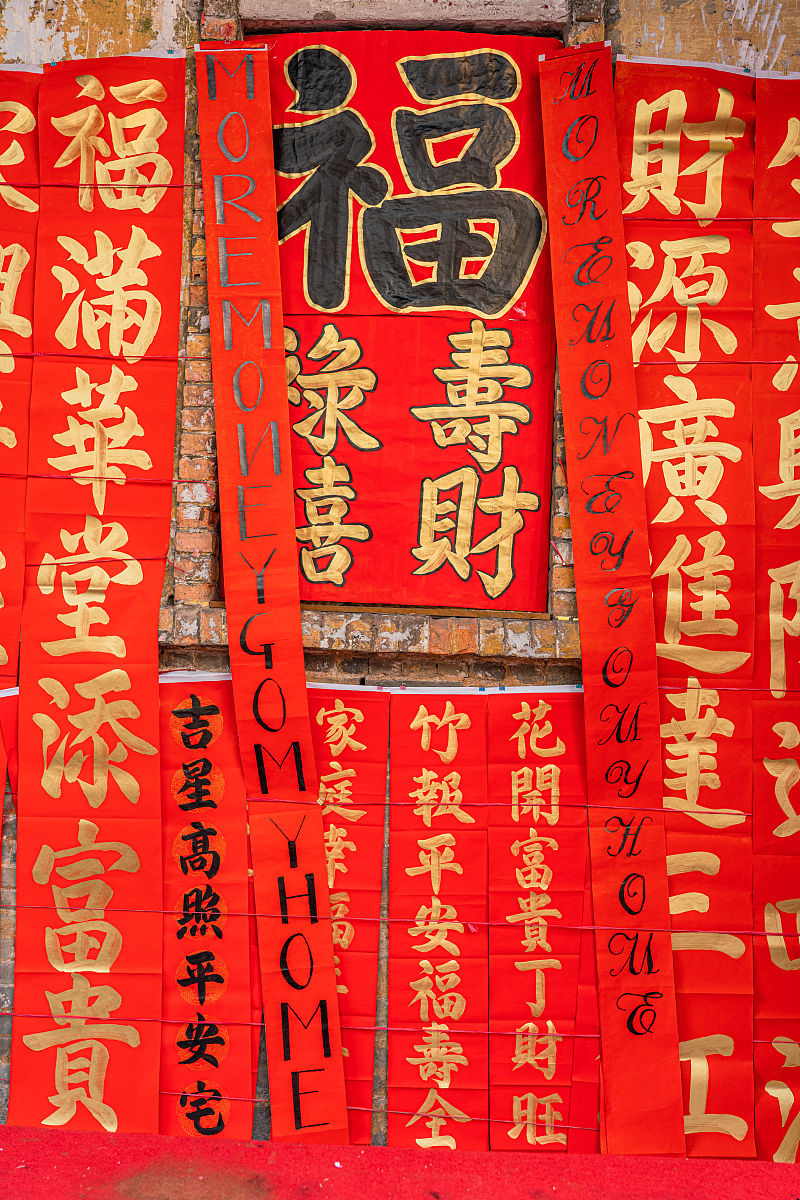 福滿華堂添富貴
MOREMONEYGOMYHOME
福
祿壽
喜財
MOREMONEYGOMYHOME
財源廣進達三
吉星高照平安宅
家庭幸福
竹報平安福壽全
花開富貴丁財旺